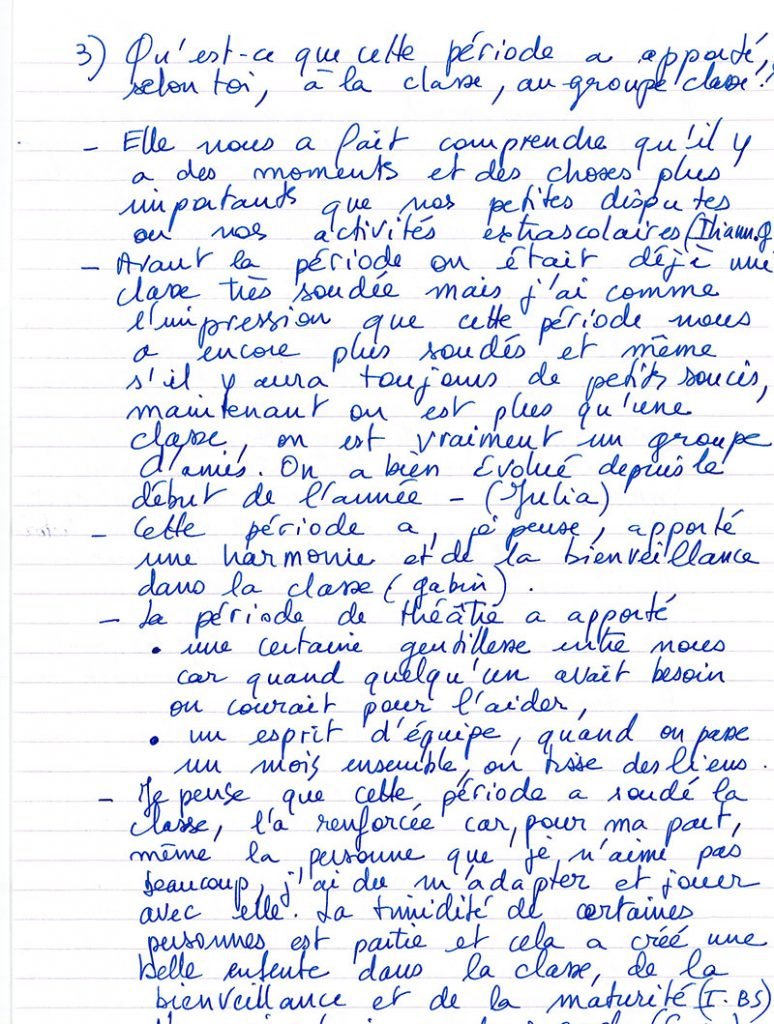 3) Qu'est-ce que cette période a apporté,
selon toi, à la classe, au groupe classe?
- Elle nous a fait comprendre qu'il y
a des moments et des choses plus
importants que nos petites disputes
ou nos activités extrascolaires (
- Avant la période on était déjà une
classe très soudée mais j'ai comme
l'impression que cette période nous
a encore plus soudés et même
s'il y aura toujours de petits soucis,
maintenant on est plus qu'une
classe, on est vraiment un groupe
d'amis. On a bien évolué depuis le
début de l'année - (Julia)
- Cette période a, je pense, apporté
une harmonie et de la bienveillance
dans la classe (gabin).
- La période de théâtre a apporté
• une certaine gentillesse entre nous
car quand quelqu'un avait besoin
on courait pour l'aider,
• un esprit d'équipe, quand on passe
un mois ensemble, on tisse des liens.
- Je pense que cette période a soudé la
classe, l'a renforcée car, pour ma part,
même la personne que je n'aime pas
beaucoup, j'ai du m'adapter et jouer
avec elle. La timidité de certaines
personnes est partie et cela a créé une
belle entente dans la classe, de la
bienveillance et de la maturité (I.BS)